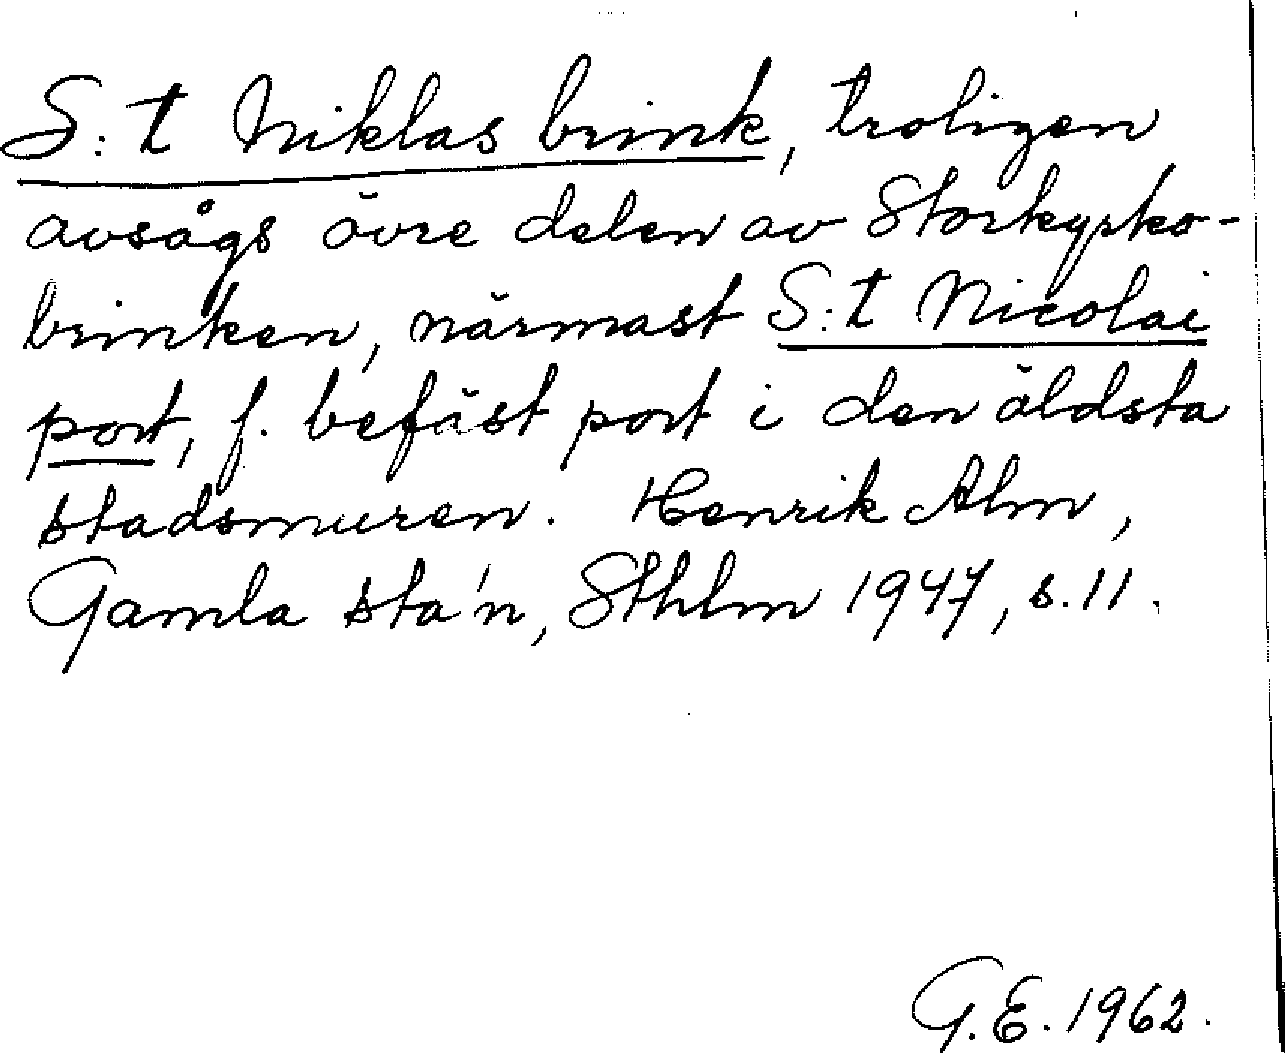 S:t Niklas brink, troligen
avsågs övre delen av Storkyrko-
brinken, närmast S:t Nicolai
port, f. befäst port i den äldsta
stadsmuren. Henrik Alm,
Gamla sta'n, Sthlm 1947, s. 11.
G.E. 1962.